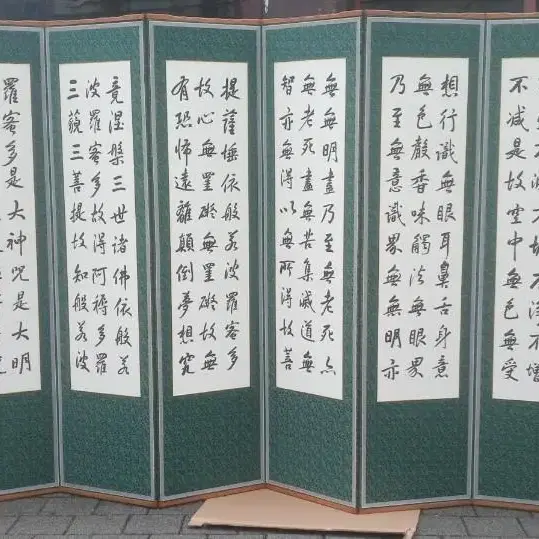 不滅不垢不淨不增
不減是故空中無色無受
想行識無眼耳鼻舌身意
無色聲香味觸法無眼界
乃至無意識界無無明亦
無無明盡乃至無老死亦
無老死盡無苦集滅道無
智亦無得以無所得故菩
提薩埵依般若波羅密多
故心無罣礙無罣礙故無
有恐怖遠離顛倒夢想究
竟涅槃三世諸佛依般若
波羅密多故得阿耨多羅
三藐三菩提故知般若波
羅密多是大神呪是大明